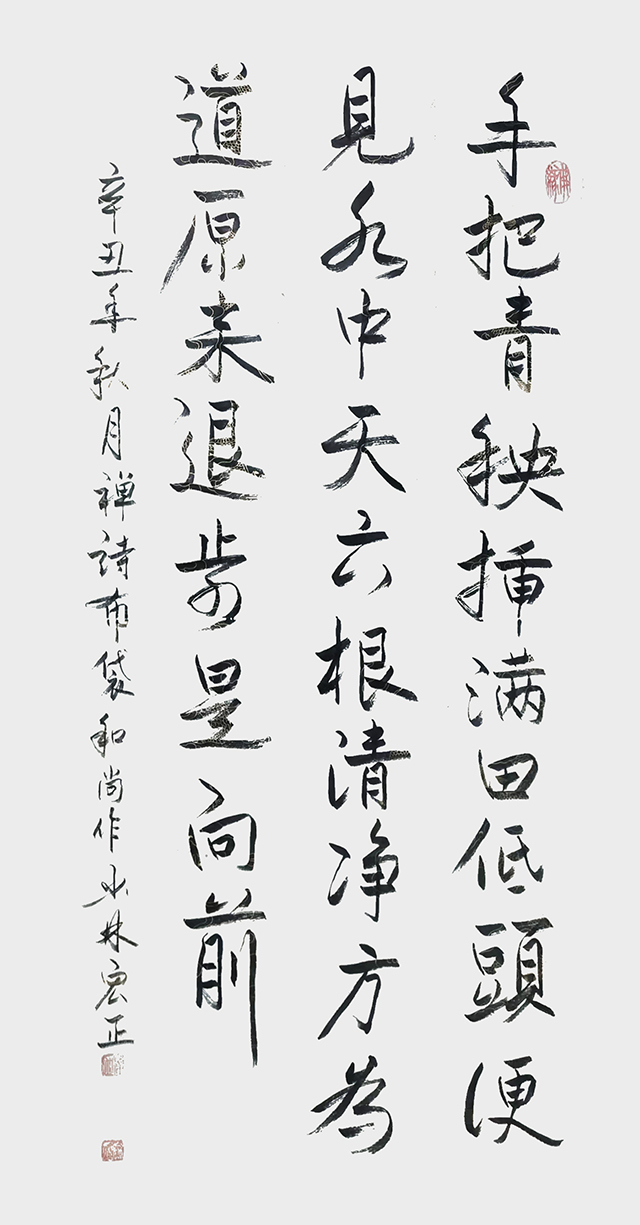 手把青秧插满田低頭便
見水中天六根清净方為
道原来退步是向前
辛丑年秋月禅詩布袋和尚作水林宏正